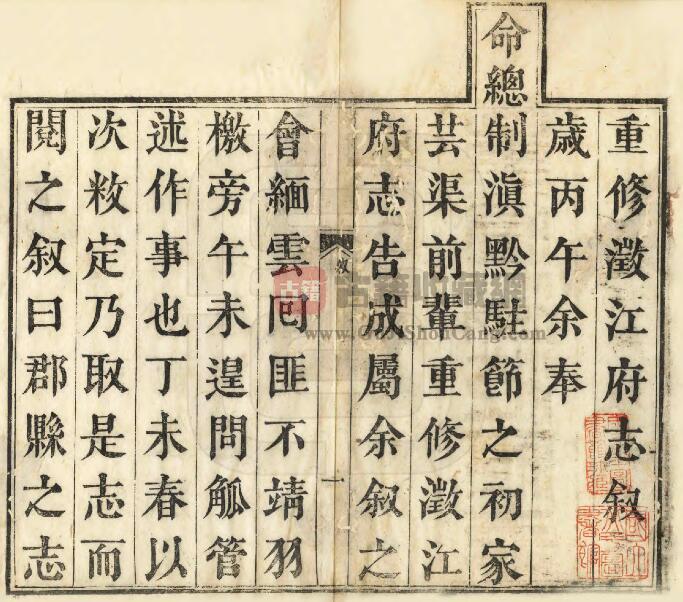 重修澂江府志叙
歲丙午余奉
命總制滇黔駐節之初家
芸渠前輩重修澂江
府志告成屬余叙之
叙
一
會緬雲囘匪不靖羽
檄旁午未遑問觚管
述作事也丁未春以
次敉定乃取是志而
閱之叙曰郡縣之志
古籍
古籍收藏網
www.GujiShouCang.com